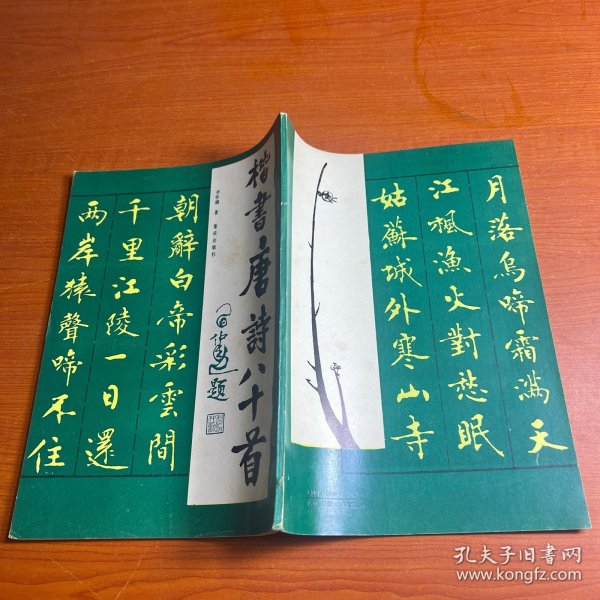 月落烏啼霜滿天
江楓漁火對愁眠
姑蘇城外寒山寺
楷書唐詩八十首
著
重慶出版社
題
朝辭白帝彩雲間
千里江陵一日還
兩岸猿聲啼不住
孔夫子旧书网
www.kongfz.com